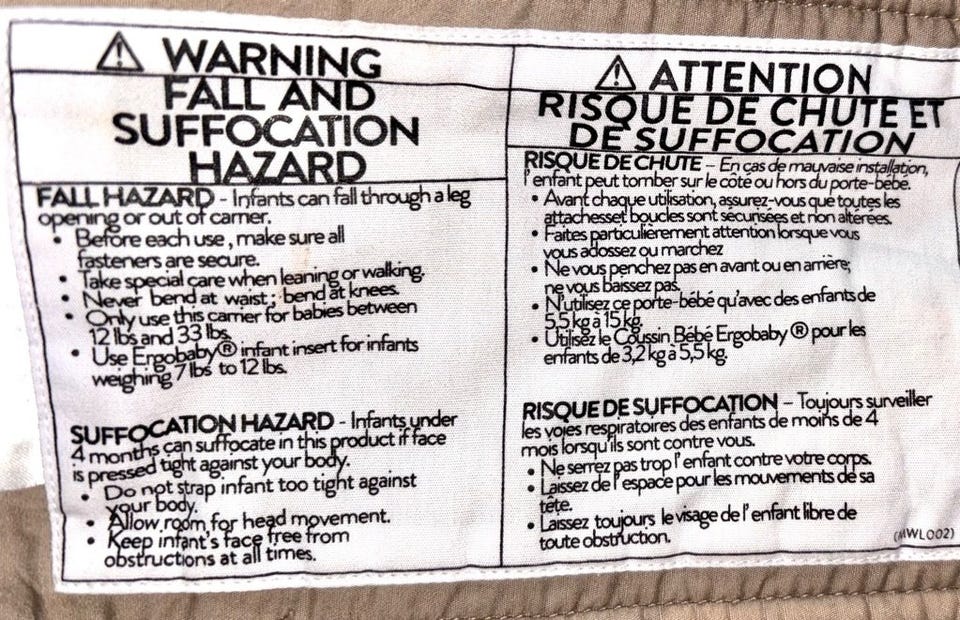 WARNING
FALL AND
SUFFOCATION
HAZARD
FALL HAZARD - Infants can fall through a leg
opening or out of carrier.
• Before each use, make sure all
fasteners are secure.
• Take special care when leaning or walking.
• Never bend at waist; bend at knees.
• Only use this carrier for babies between
12 lbs and 33 lbs.
• Use Ergobaby® infant insert for infants
weighing 7 lbs to 12 lbs.
SUFFOCATION HAZARD - Infants under
4 months can suffocate in this product if face
is pressed tight against your body.
• Do not strap infant too tight against
your body.
• Allow room for head movement.
• Keep infant's face free from
obstructions at all times.
ATTENTION
RISQUE DE CHUTE ET
DE SUFFOCATION
RISQUE DE CHUTE – En cas de mauvaise installation,
l'enfant peut tomber sur le côté ou hors du porte-bébé.
• Avant chaque utilisation, assurez-vous que toutes les
attachesset boucles sont sécurisées et non altérées.
• Faites particulièrement attention lorsque vous
vous adossez ou marchez
• Ne vous penchez pas en avant ou en arrière;
ne vous baissez pas.
• N'utilisez ce porte-bébé qu'avec des enfants de
5,5 kg à 15 kg.
• Utilisez le Coussin Bébé Ergobaby® pour les
enfants de 3,2 kg à 5,5 kg.
RISQUE DE SUFFOCATION – Toujours surveiller
les voies respiratoires des enfants de moins de 4
mois lorsqu'ils sont contre vous.
• Ne serrez pas trop l'enfant contre votre corps.
• Laissez de l'espace pour les mouvements de sa
tête.
• Laissez toujours le visage de l'enfant libre de
toute obstruction.
(MWL002)